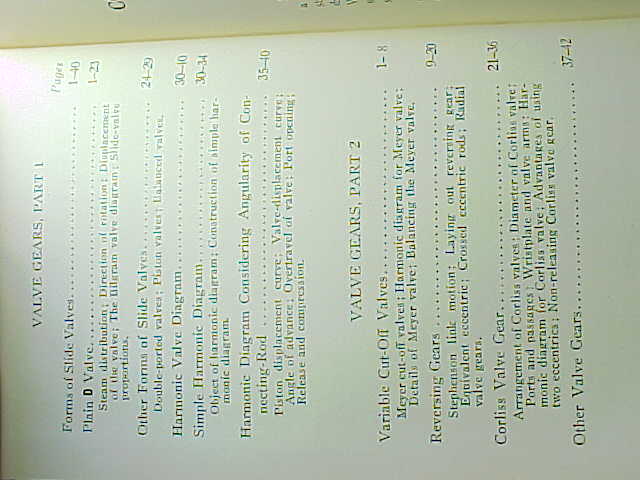 VALVE GEARS, PART 1
Pages
Forms of Slide Valves 1–40
Plain D Valve 1–23
Steam distribution; Direction of rotation; Displacement
of the valve; The Bilgram valve diagram; Slide-valve
proportions.
Other Forms of Slide Valves 24–29
Double-ported valves; Piston valves; Balanced valves.
Harmonic Valve Diagram 30–40
Simple Harmonic Diagram 30–34
Object of harmonic diagram; Construction of simple har-
monic diagram.
Harmonic Diagram Considering Angularity of Con-
necting-Rod 35–40
Piston displacement curve; Valve-displacement curve;
Angle of advance; Overtravel of valve; Port opening;
Release and compression.
VALVE GEARS, PART 2
Variable Cut-Off Valves 1–8
Meyer cut-off valves; Harmonic diagram for Meyer valve;
Details of Meyer valve; Balancing the Meyer valve.
Reversing Gears 9–20
Stephenson link motion; Laying out reversing gear;
Equivalent eccentric; Crossed eccentric rods; Radial
valve gears.
Corliss Valve Gear 21–36
Arrangement of Corliss valves; Diameter of Corliss valve;
Ports and passages; Wristplate and valve arms; Har-
monic diagram for Corliss valve; Advantages of using
two eccentrics; Non-releasing Corliss valve gear.
Other Valve Gears 37–42